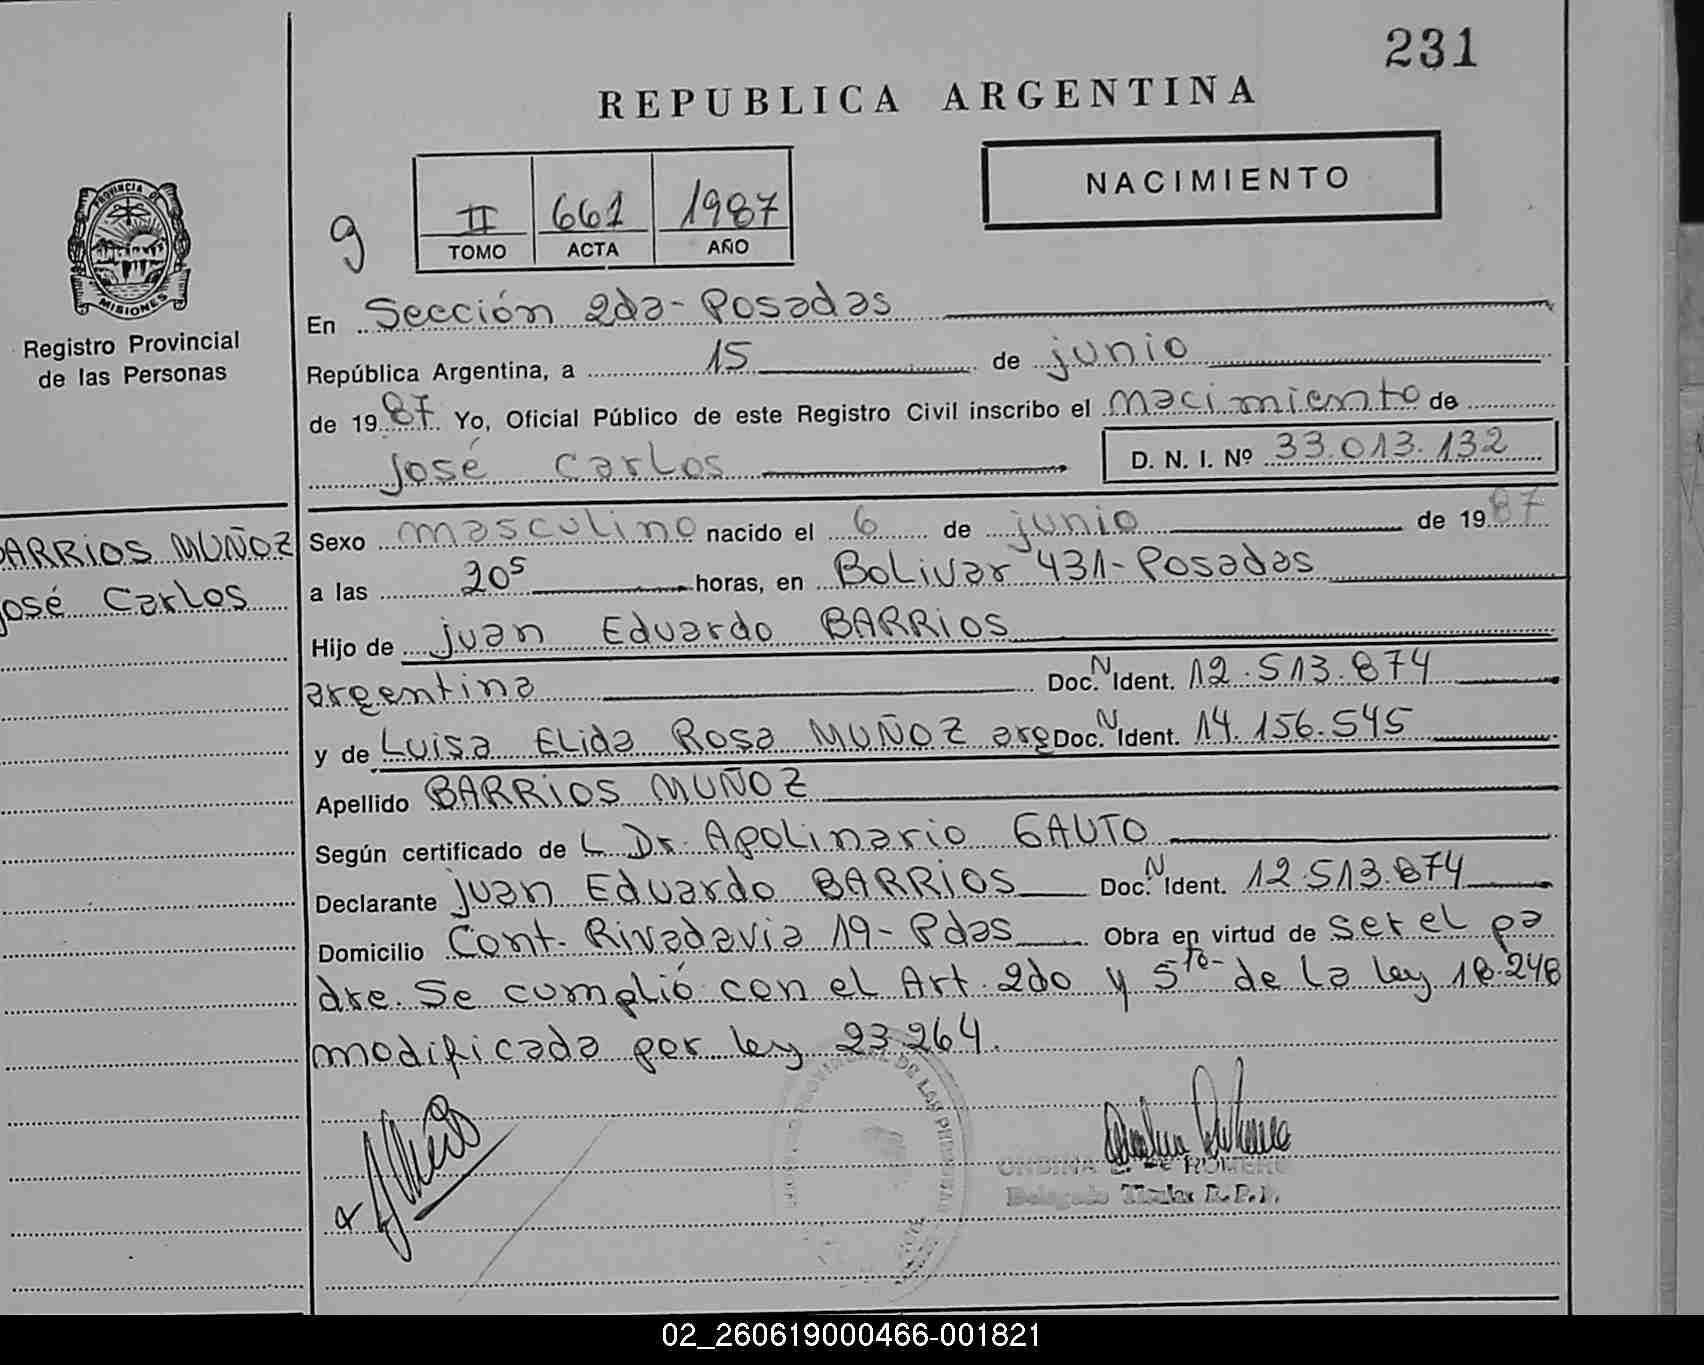 231
REPUBLICA ARGENTINA
NACIMIENTO
g
II 661 1987
TOMO ACTA AÑO
PROVINCIA DE
MISIONES
Registro Provincial
de las Personas
BARRIOS MUÑOZ
José Carlos
En Sección 2da - Posadas
República Argentina, a 15 de junio
de 1987 Yo, Oficial Público de este Registro Civil inscribo el nacimiento de
José Carlos D. N. I. Nº 33.013.132
Sexo masculino nacido el 6 de junio de 1987
a las 20⁵ horas, en Bolivar 431 - Posadas
Hijo de Juan Eduardo BARRIOS
argentina Doc. N Ident. 12.513.874
y de Luisa Elida Rosa MUÑOZ arg Doc. N Ident. 14.156.545
Apellido BARRIOS MUÑOZ
Según certificado de L Dr. Apolinario GAUTO
Declarante Juan Eduardo BARRIOS Doc. N Ident. 12.513.874
Domicilio Cont. Rivadavia 19 - Pdas Obra en virtud de ser el pa
dre. Se cumplió con el Art. 2do y 5to- de la ley 18.248
modificada por ley 23.264.
PROVINCIAL DE LAS PERSONAS
ONDINA DE ROMERO
Delegado Titular R.P.P.
02_260619000466-001821